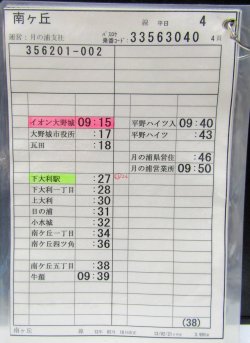 南ヶ丘 線 平日 4
運営:月の浦支社 33563040 4頁
356201-002
イオン大野城 09:15
大野城市役所 :17
瓦田 :18
下大利駅 :27
下大利一丁目 :28
上大利 :30
日の浦 :31
小水城 :32
南ケ丘一丁目 :34
南ケ丘四ツ角 :36
南ケ丘五丁目 :38
牛頸 09:39
平野ハイツ入 09:40
平野ハイツ :43
月の浦県営住 :46
月の浦営業所 09:50
(38)
南ヶ丘 線